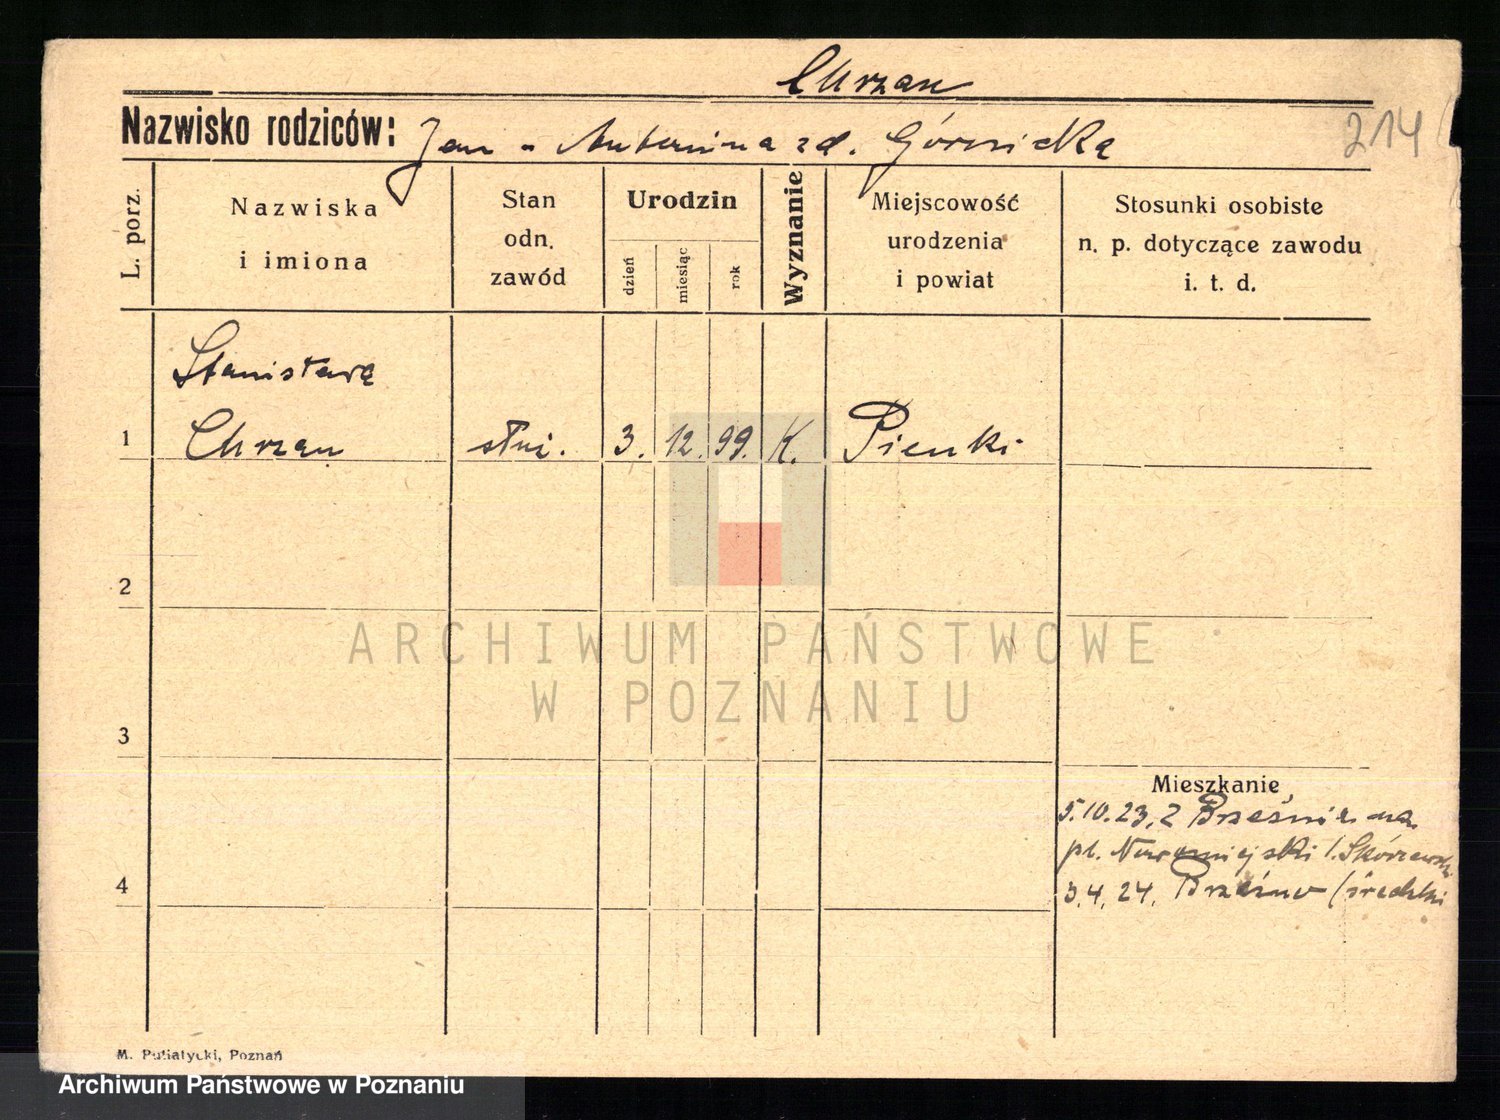 Chrzan
Nazwisko rodziców: Jan - Antonina zd. Górnicka
214
L. porz.
Nazwiska
i imiona
Stan
odn.
zawód
Urodzin
dzień
miesiąc
rok
Wyznanie
Miejscowość
urodzenia
i powiat
Stosunki osobiste
n. p. dotyczące zawodu
i. t. d.
Stanisława
1 Chrzan służ. 3. 12. 99. K. Pienki
2
ARCHIWUM PAŃSTWOWE
W POZNANIU
3
Mieszkanie
5.10.23, z na
pl. Nowomiejski
4
3.4.24. Brzeźno (średzki
M. Putiatycki, Poznań
Archiwum Państwowe w Poznaniu